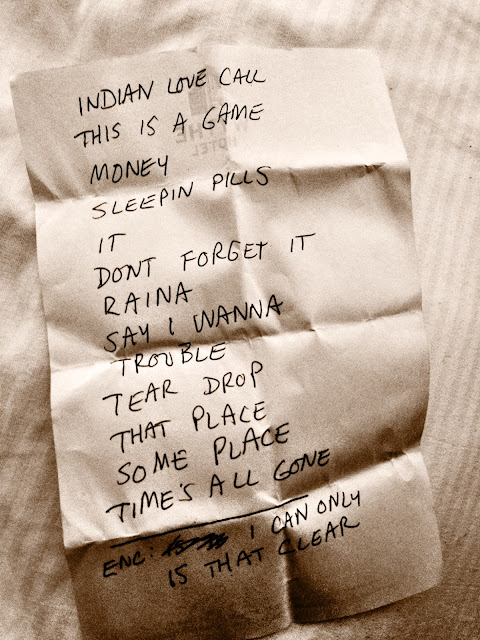 INDIAN LOVE CALL
THIS IS A GAME
MONEY
SLEEPIN PILLS
IT
DONT FORGET IT
RAINA
SAY I WANNA
TROUBLE
TEAR DROP
THAT PLACE
SOME PLACE
TIME'S ALL GONE
ENC: I CAN ONLY
IS THAT CLEAR
HOTEL